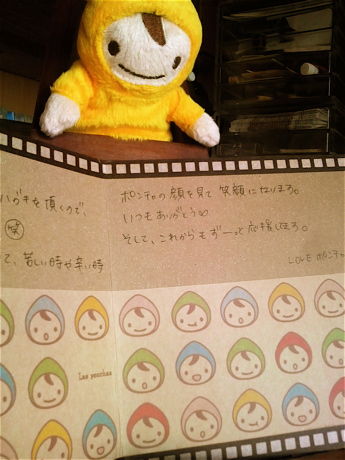 ハガキを頂くので、
笑
て、苦しい時や辛い時
ポンチョの顔を見て笑顔になりまる。
いつもありがとう♡
そして、これからもずーっと応援しまる。
LOVE ポンチョ
Los ponchos